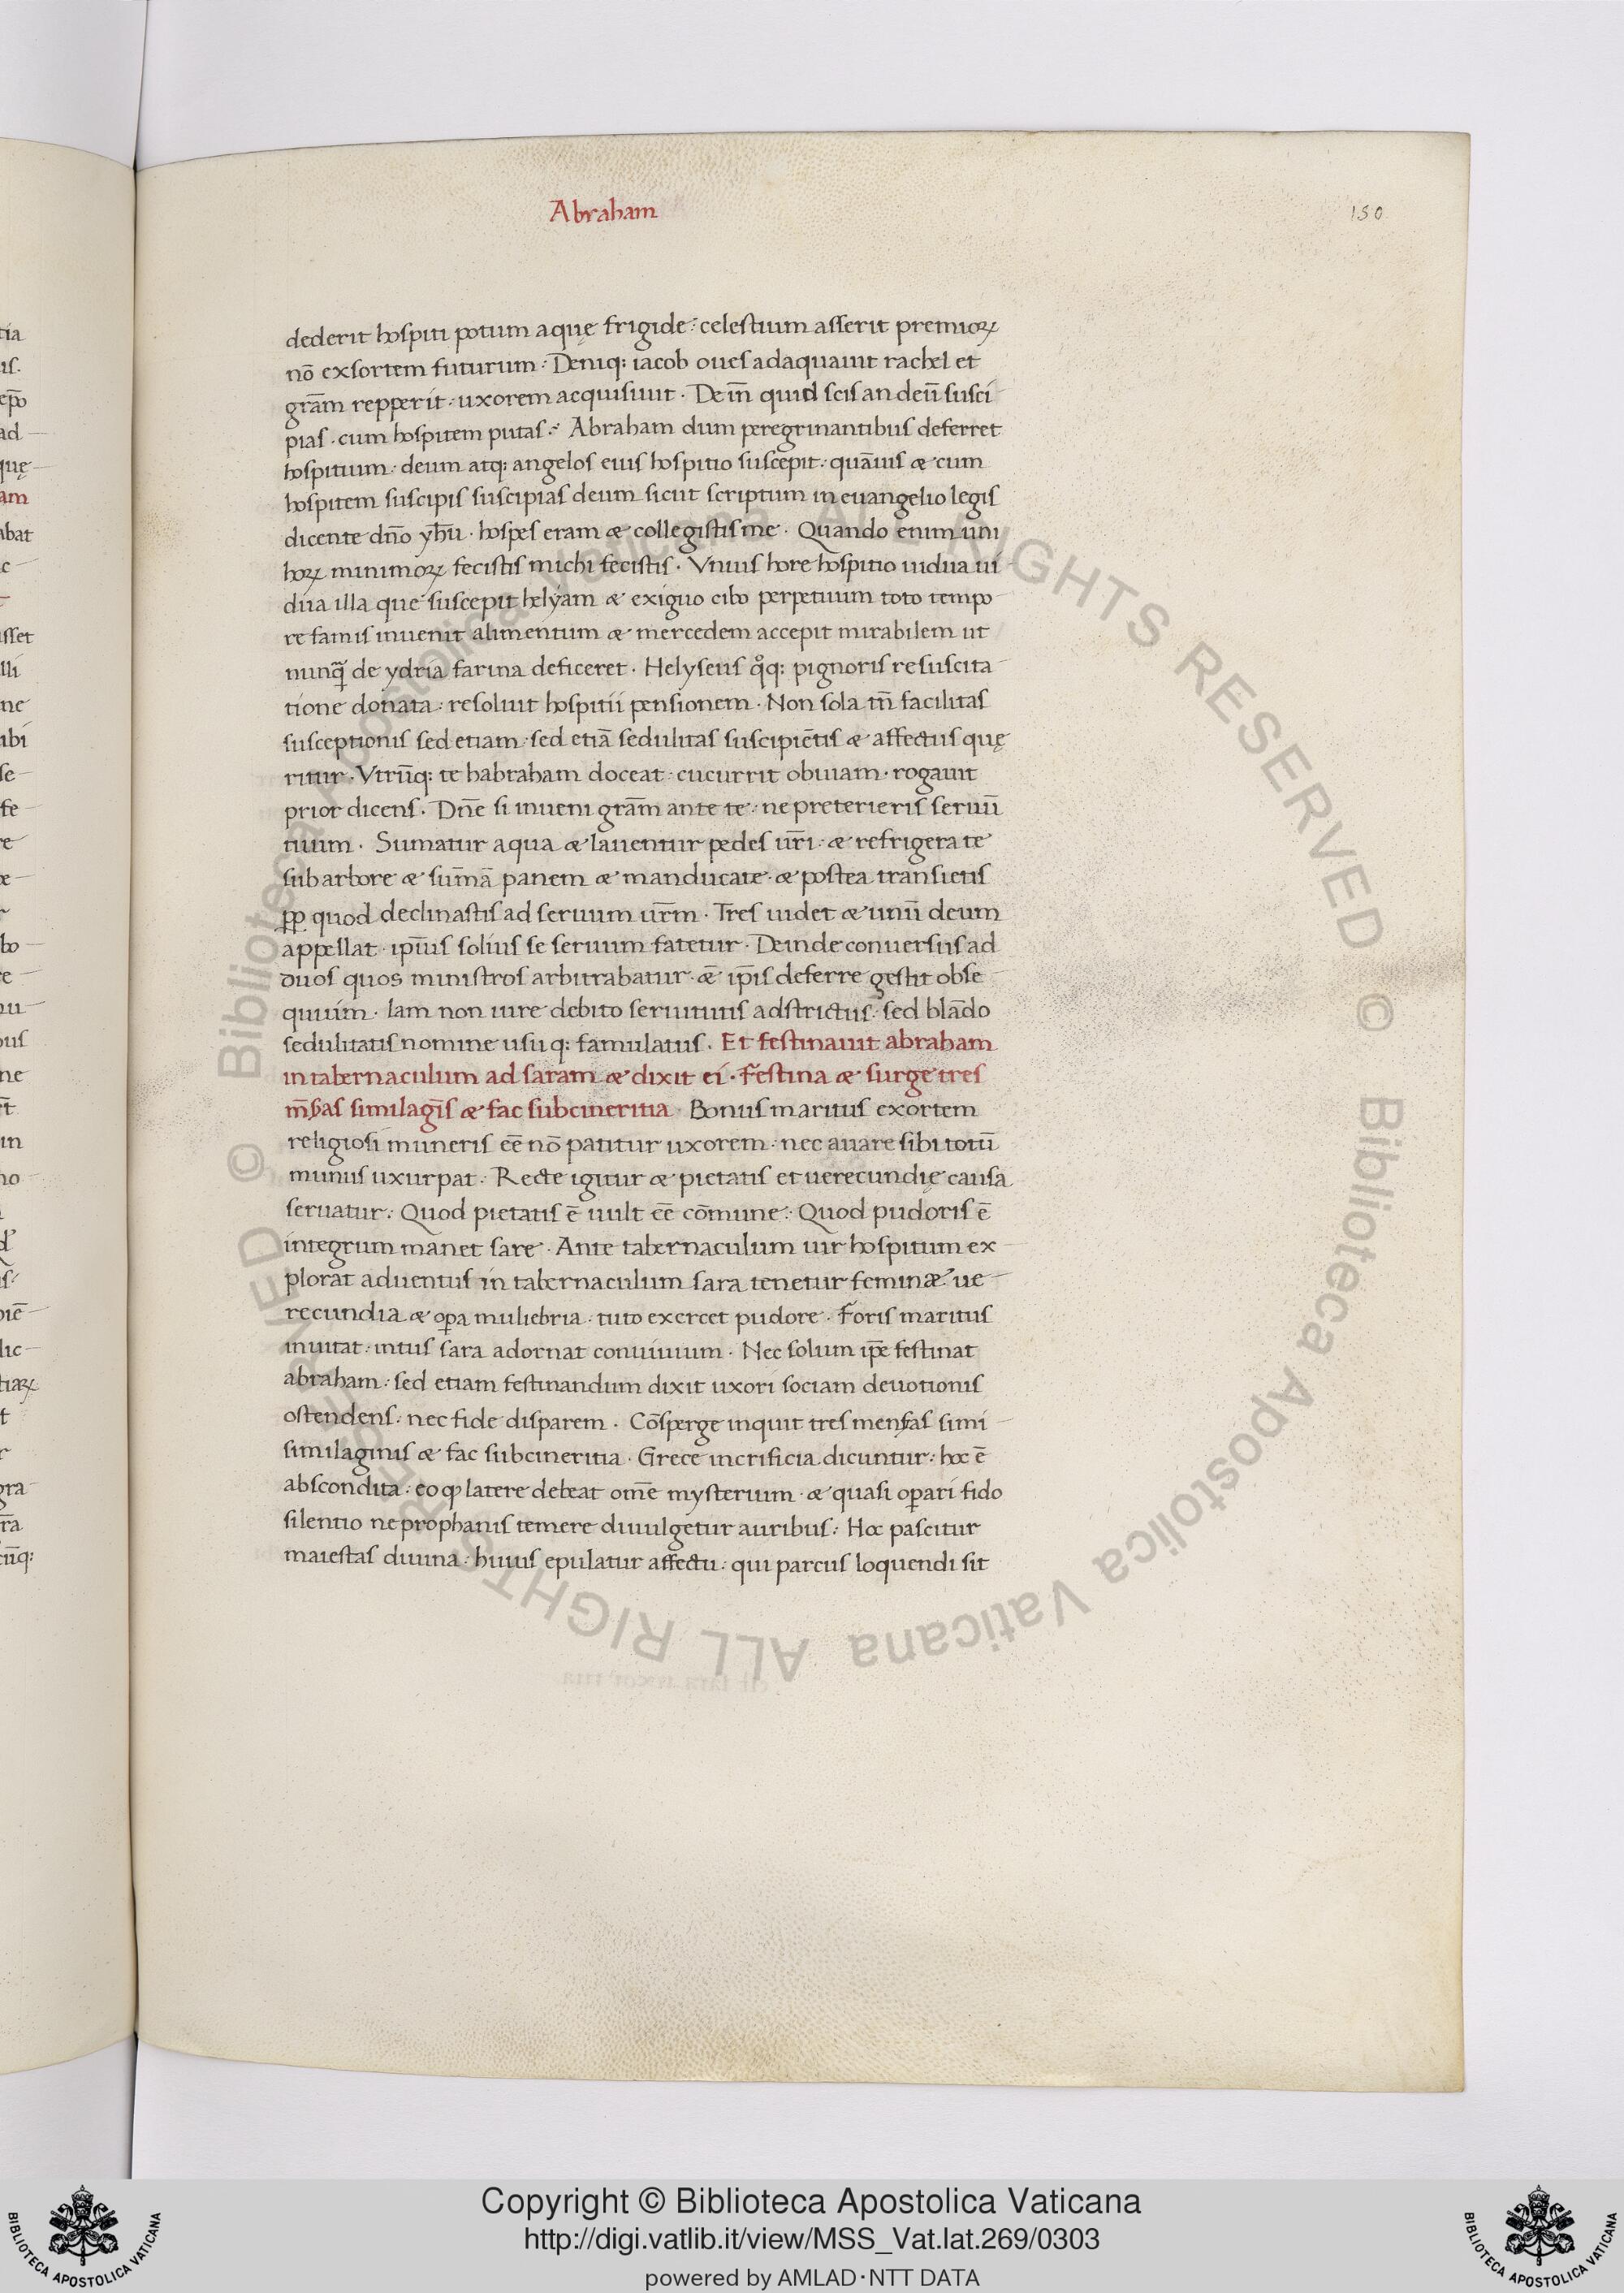 Abraham
150
dederit hospiti potum aquę frigide: celestium asserit premioꝝ
nō exsortem futurum. Deniq; iacob oues adaquauit rachel et
grām repperit: uxorem acquisiuit. Dein̄ quid scis an deū susci
pias. cum hospitem putas. Abraham dum peregrinantibus deferret
hospitium: deum atq; angelos eius hospitio suscepit: quāuis & cum
hospitem suscipis suscipias deum sicut scriptum in euangelio legis
dicente dn̄o yh̄u. hospes eram & collegistis me. Quando enim uni
hoꝝ minimoꝝ fecistis michi fecistis. Vnius hore hospitio uidua ui
dua illa que suscepit helyam & exiguo cibo perpetuum toto tempo
re famis inuenit alimentum & mercedem accepit mirabilem ut
nunq̄ de ydria farina deficeret. Helyseus q̊q; pignoris resuscita
tione donata: resoluit hospitii pensionem. Non sola tn̄ facilitas
susceptionis sed etiam sed etiā sedulitas suscipiētis & affectus quę
ritur. Vtrūq; te habraham doceat: cucurrit obuiam. rogauit
prior dicens. Dn̄e si inueni grām ante te: ne preterieris seruū
tuum. Sumatur aqua & lauentur pedes ur̄i: & refrigerate
sub arbore & sum̄ā panem & manducate & postea transietis
ꝓp quod declinastis ad seruum ur̄m. Tres uidet & unū deum
appellat ip̄ius solius se seruum fatetur. Deinde conuersus ad
duos quos ministros arbitrabatur. & ip̄is deferre gestit obse
quium. Iam non iure debito seruitutis adstrictus: sed blādo
sedulitatis nomine usuq; famulatus. Et festinauit abraham
in tabernaculum ad saram & dixit ei. Festina & surge tres
m̄sas similagīs & fac subcineritia. Bonus maritus exortem
religiosi muneris eē nō patitur uxorem: nec auare sibi totū
munus uxurpat. Recte igitur & pietatis et uerecundię causa
seruatur: Quod pietatis ē uult eē cōmune: Quod pudoris ē
integrum manet sare. Ante tabernaculum uir hospitum ex
plorat aduentus in tabernaculum sara tenetur feminæ ue
recundia & oꝑa muliebria: tuto exercet pudore. Foris maritus
inuitat: intus sara adornat conuiuium. Nec solum ip̄e festinat
abraham: sed etiam festinandum dixit uxori sociam deuotionis
ostendens: nec fide disparem. Cōsperge inquit tres mensas simi
similaginis & fac subcineritia. Grece incrificia dicuntur: hoc ē
abscondita: eo ꝙ latere debeat om̄e mysterium & quasi oꝑari fido
silentio ne prophanis temere diuulgetur auribus: Hoc pascitur
maiestas diuina: huius epulatur affectu: qui parcus loquendi sit
Copyright © Biblioteca Apostolica Vaticana
http://digi.vatlib.it/view/MSS_Vat.lat.269/0303
powered by AMLAD·NTT DATA